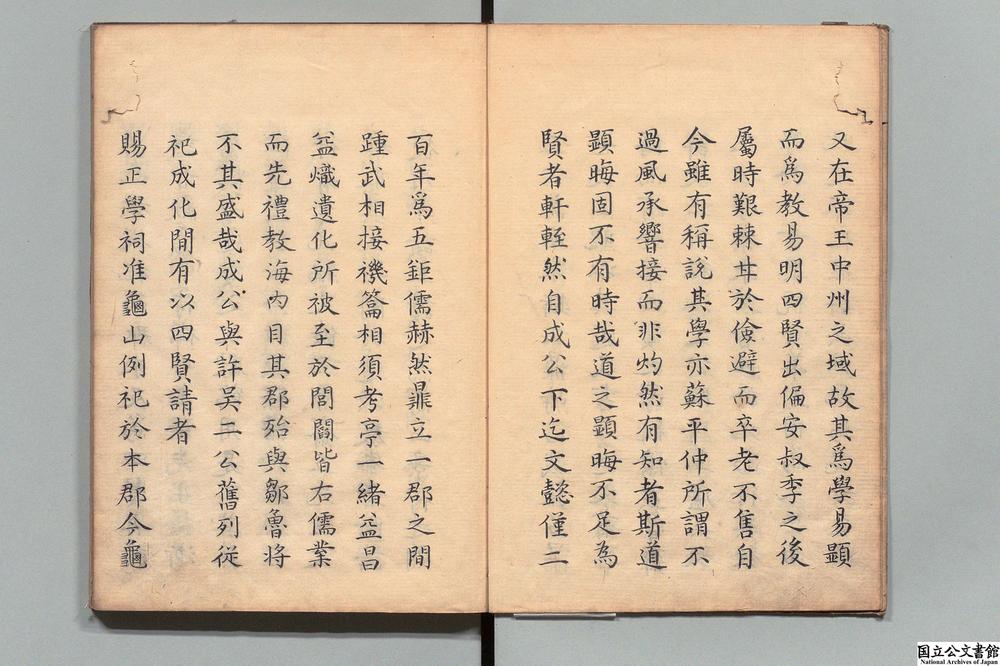 又在帝王中州之域故其爲學易顯
而爲教易明四賢出偏安叔季之後
屬時艱棘并於儉避而卒老不售自
今雖有稱說其學亦蘇平仲所謂不
過風承響接而非灼然有知者斯道
顯晦固不有時哉道之顯晦不足為
賢者軒輊然自成公下迄文懿僅二
百年爲五鉅儒赫然鼎立一郡之間
踵武相接禨籥相須考亭一緒益昌
益熾遺化所被至於閭閻皆右儒業
而先禮教海內目其郡殆與鄒魯將
不其盛哉成公與許吳二公舊列從
祀成化間有以四賢請者
賜正學祠准龜山例祀於本郡今龜
国立公文書館
National Archives of Japan